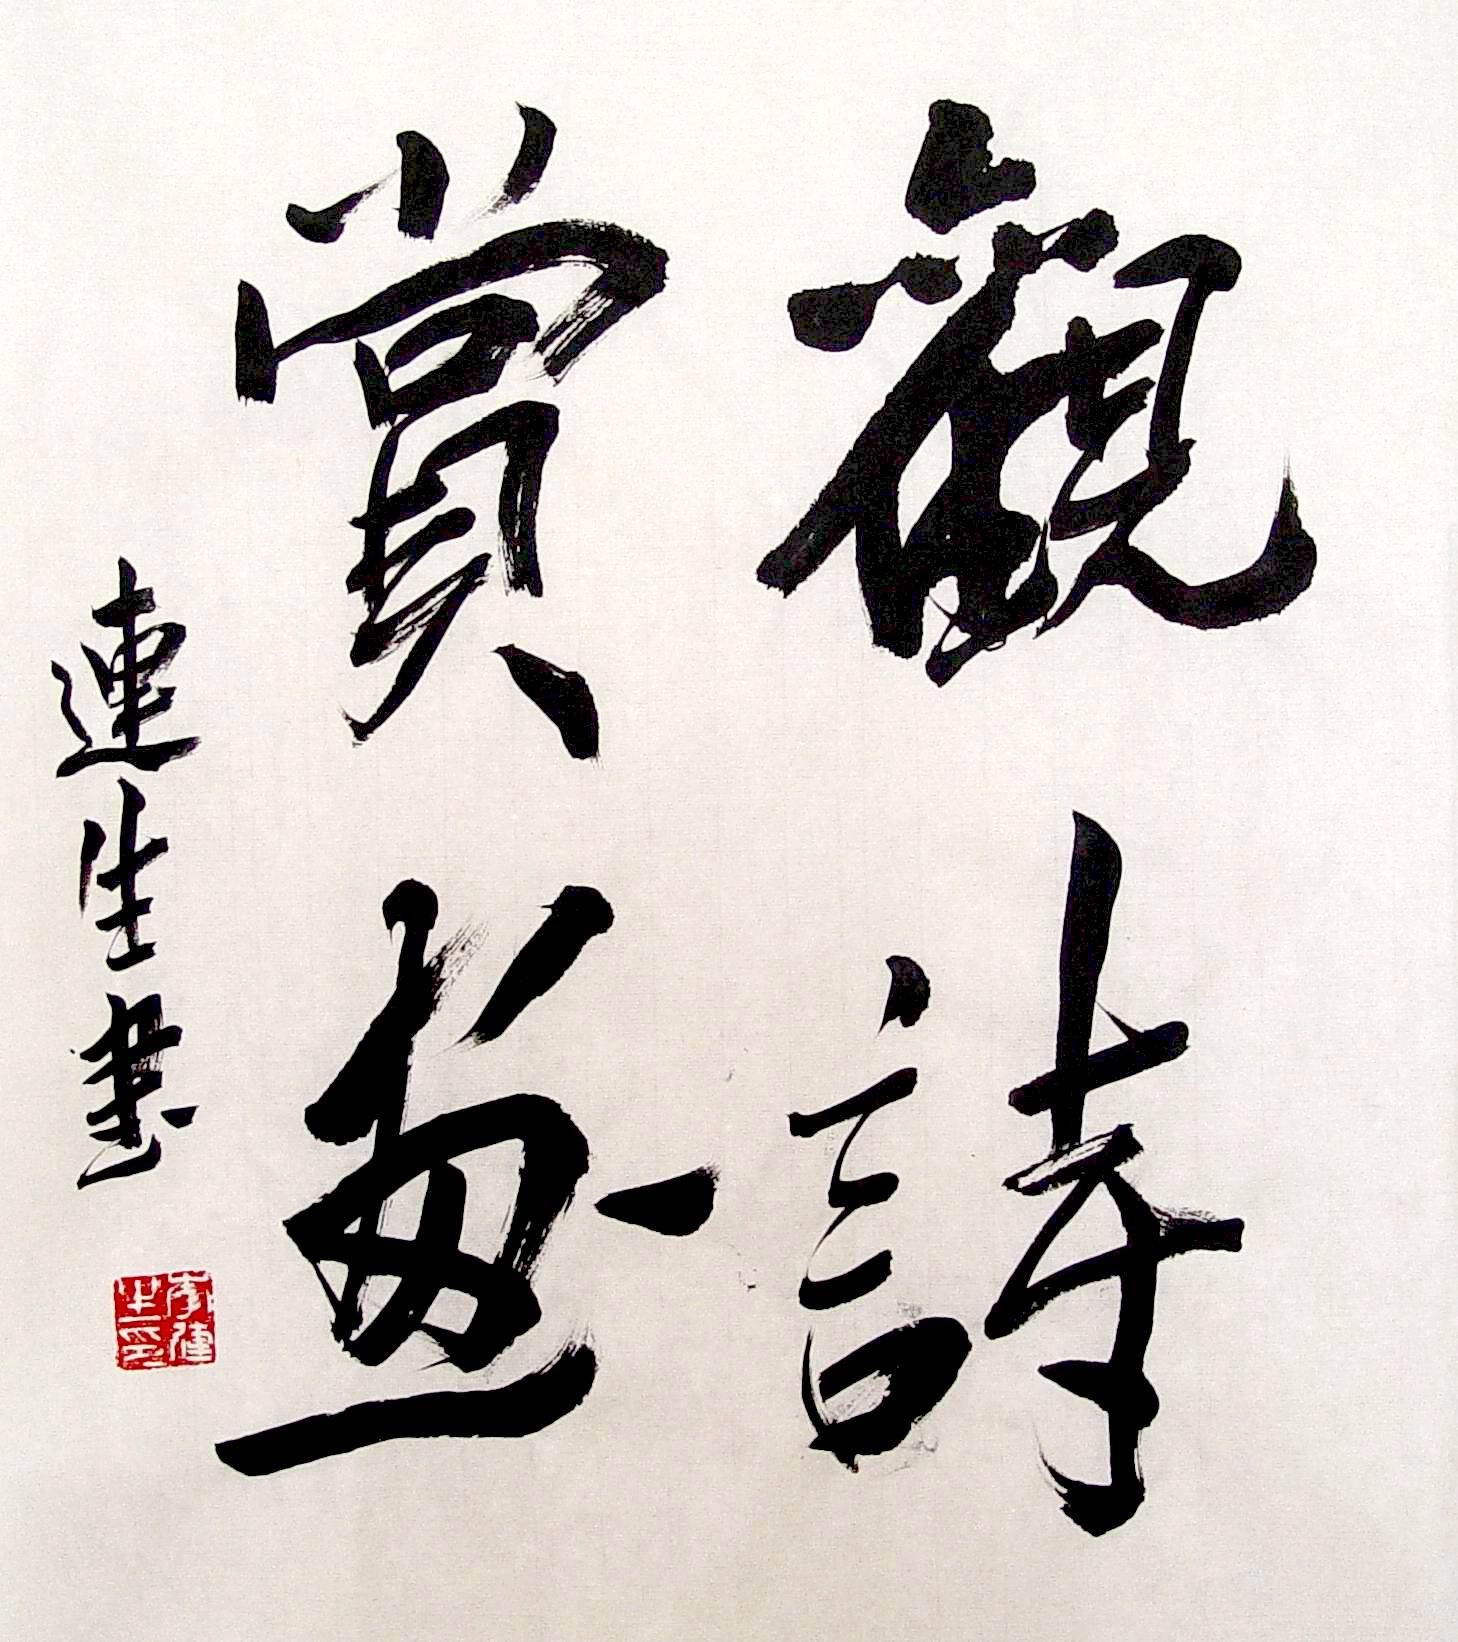 觀詩
賞畫
連生書
李連
生印